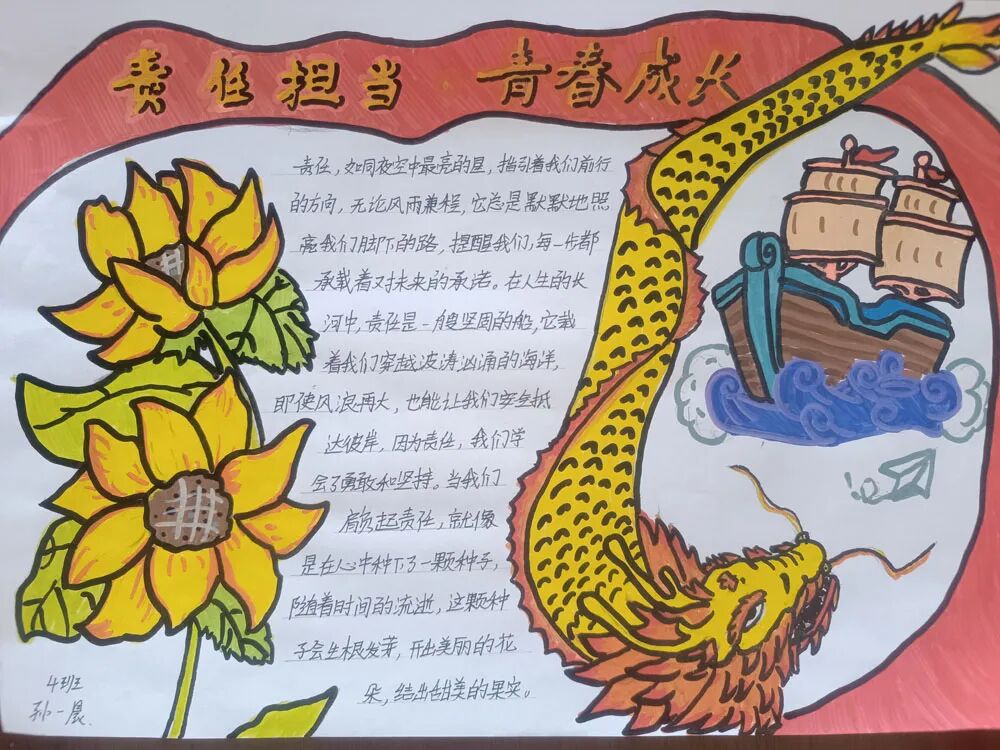 责任担当·青春成长
责任，如同夜空中最亮的星，指引着我们前行
的方向，无论风雨兼程，它总是默默地照
亮我们脚下的路，提醒我们，每一步都
承载着对未来的承诺。在人生的长
河中，责任是一艘坚固的船，它载
着我们穿越波涛汹涌的海洋，
即使风浪再大，也能让我们安全抵
达彼岸，因为责任，我们学
会了勇敢和坚持。当我们
肩负起责任，就像
是在心中种下了一颗种子，
随着时间的流逝，这颗种
子会生根发芽，开出美丽的花
朵，结出甜美的果实。
4班
孙一晨